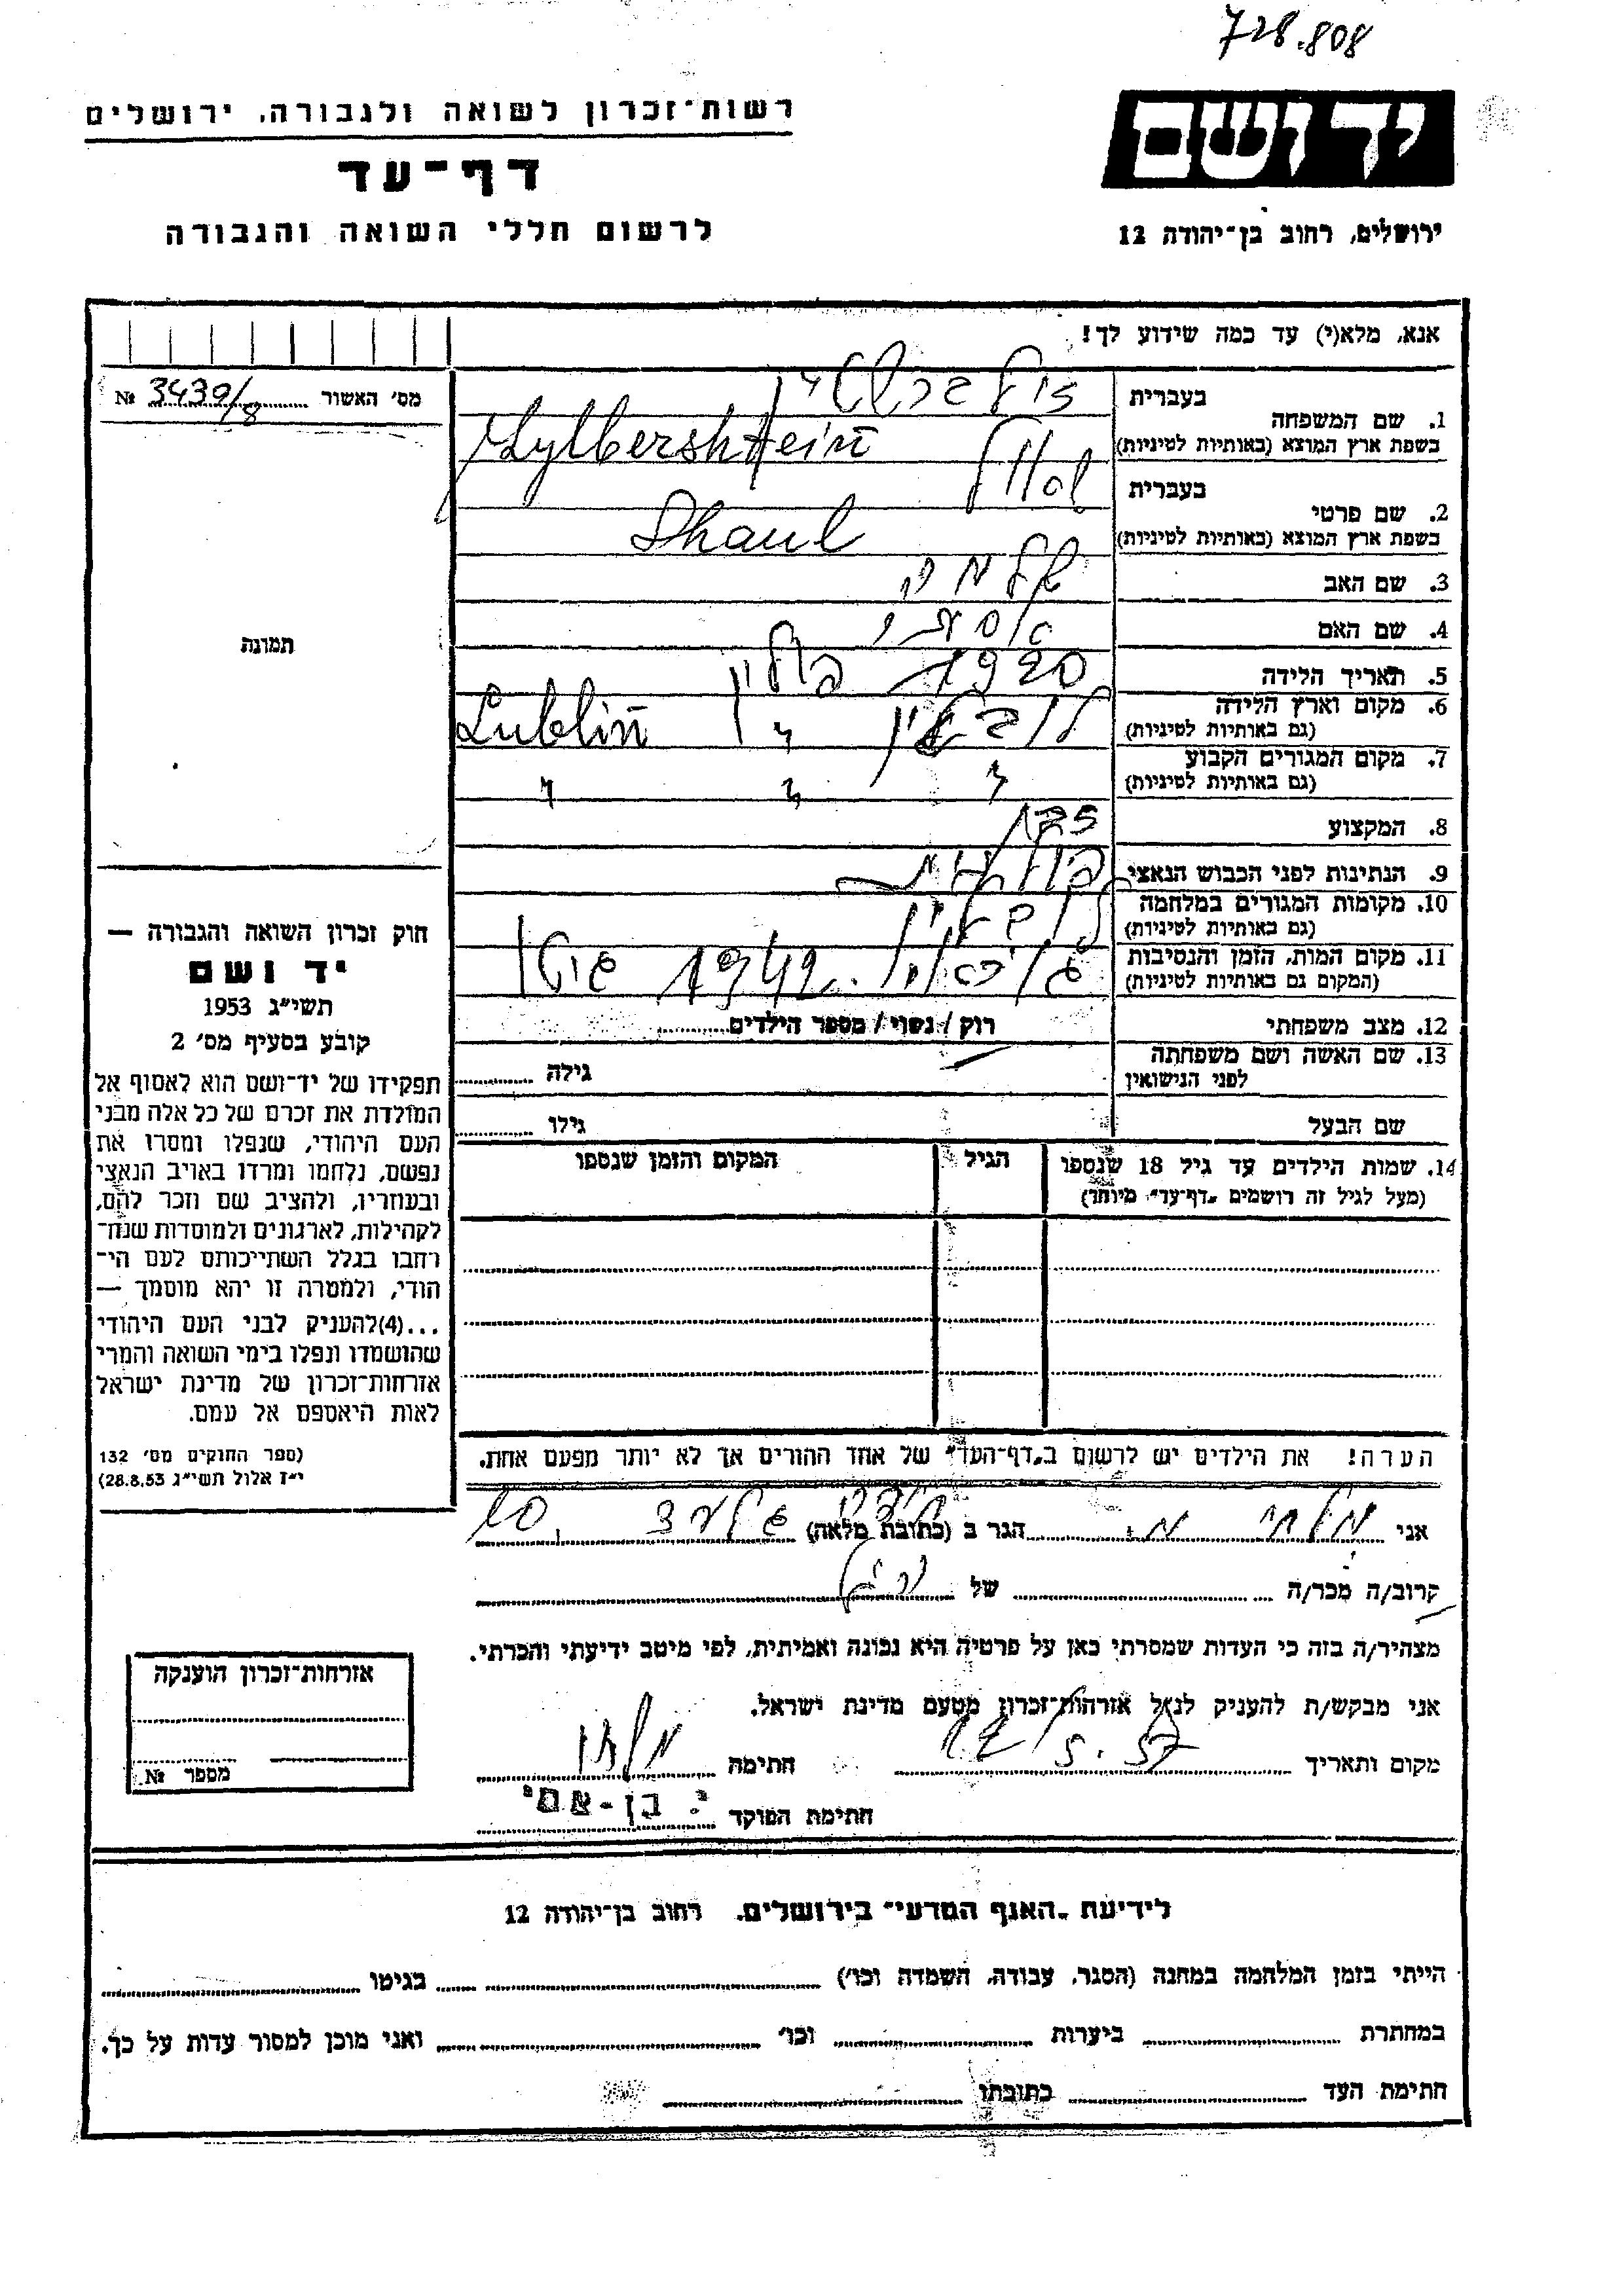 728.808
רשות־זכרון לשואה ולגבורה, ירושלים
יד ושם
דף־עד
לרשום חללי השואה והגבורה
ירושלים, רחוב בן־יהודה 12
אנא, מלא(י) עד כמה שידוע לך!
מס׳ האשור 3439/8 №
1. שם המשפחה
בעברית זילברשטיין
בשפת ארץ המוצא (באותיות לטיניות) Zylbershtein
2. שם פרטי
בעברית שאול
בשפת ארץ המוצא (באותיות לטיניות) Shaul
3. שם האב שלמה
4. שם האם אסתר
5. תאריך הלידה 1920
6. מקום וארץ הלידה
(גם באותיות לטיניות) לובלין פולין Lublin
7. מקום המגורים הקבוע
(גם באותיות לטיניות) " " "
8. המקצוע
9. הנתינות לפני הכבוש הנאצי פולנית
10. מקומות המגורים במלחמה
(גם באותיות לטיניות) לובלין
11. מקום המות, הזמן והנסיבות
(המקום גם באותיות לטיניות) 1942
12. מצב משפחתי רוק / נשוי / מספר הילדים
13. שם האשה ושם משפחתה
לפני הנישואין
גילה
שם הבעל גילו
14. שמות הילדים עד גיל 18 שנספו הגיל המקום והזמן שנספו
(מעל לגיל זה רושמים „דף־עד״ מיוחד)
תמונה
חוק זכרון השואה והגבורה —
יד ושם
תשי״ג 1953
קובע בסעיף מס׳ 2
תפקידו של יד־ושם הוא לאסוף אל
המולדת את זכרם של כל אלה מבני
העם היהודי, שנפלו ומסרו את
נפשם, נלחמו ומרדו באויב הנאצי
ובעוזריו, ולהציב שם וזכר להם,
לקהילות, לארגונים ולמוסדות שנח־
רחבו בגלל השתייכותם לעם הי־
הודי, ולמטרה זו יהא מוסמך —
...(4)להעניק לבני העם היהודי
שהושמדו ונפלו בימי השואה והמרי
אזרחות־זכרון של מדינת ישראל
לאות היאספם אל עמם.
(ספר החוקים מס׳ 132
י״ז אלול תשי״ג 28.8.53)
הערה! את הילדים יש לרשום ב„דף־העד״ של אחד ההורים אך לא יותר מפעם אחת.
אני הגר ב (כתובת מלאה)
קרוב/ה מכר/ה של
מצהיר/ה בזה כי העדות שמסרתי כאן על פרטיה היא נכונה ואמיתית, לפי מיטב ידיעתי והכרתי.
אני מבקש/ת להעניק לנ״ל אזרחות־זכרון מטעם מדינת ישראל.
מקום ותאריך 12/5.57 חתימה
חתימת הפוקד י. בן-עמי
אזרחות־זכרון הוענקה
מספר №
לידיעת „האגף המדעי״ בירושלים, רחוב בן־יהודה 12
הייתי בזמן המלחמה במחנה (הסגר, עבודה, השמדה וכו׳) בגיטו
במחתרת ביערות וכו׳ ואני מוכן למסור עדות על כך.
חתימת העד כתובתו